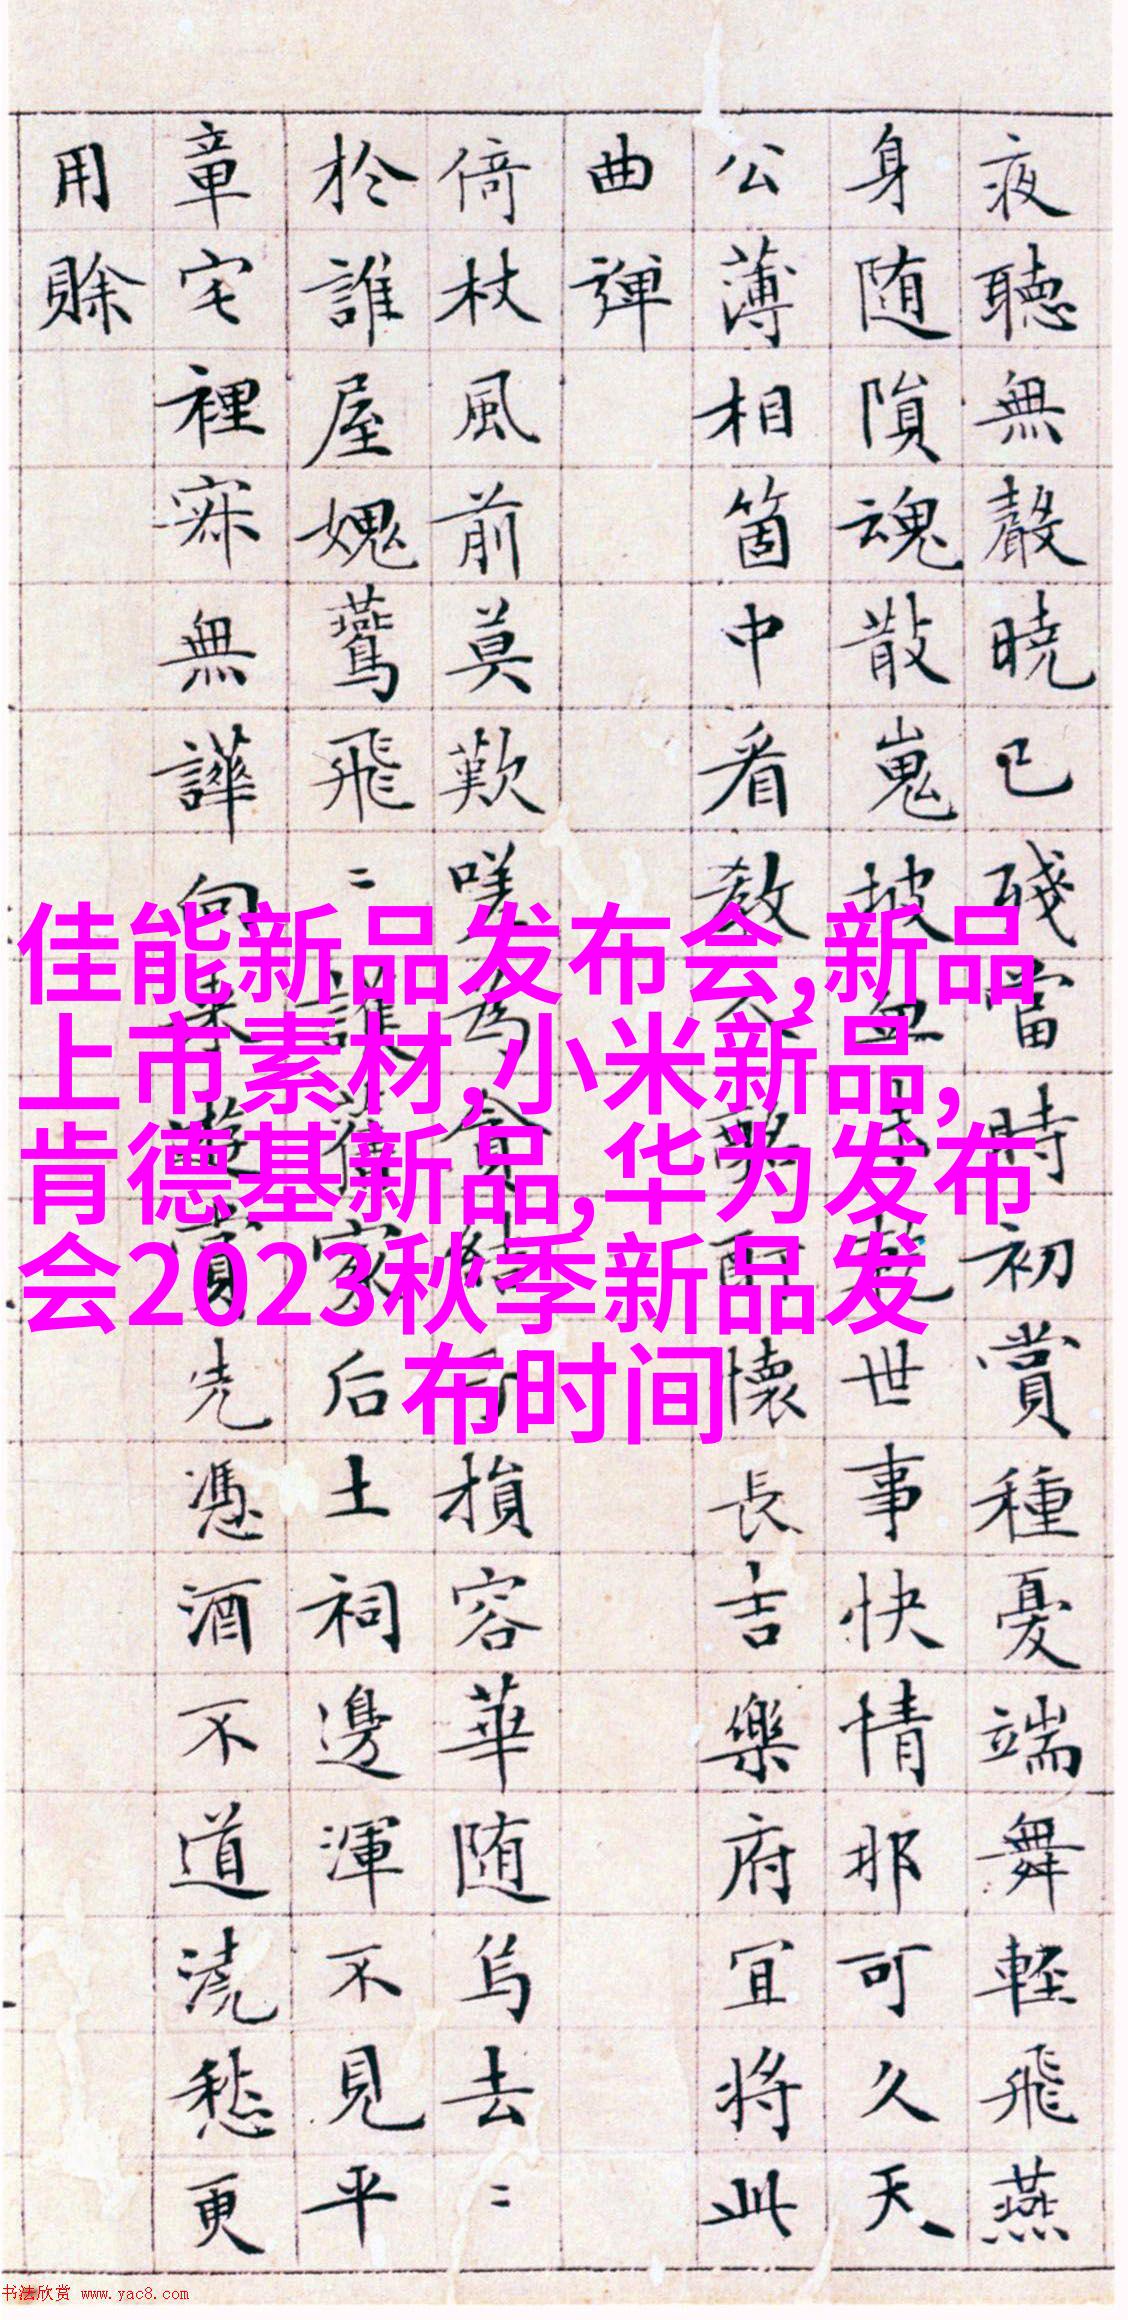 夜聽無聲曉已殘當時初賞種憂端舞輕飛燕
身随隕魂散嵬坡血世事快情那可久天
公薄相箇中看教懷長吉樂府宜将此
曲彈
倚杖風前莫歎嗟為貪結習損容華随烏去〻
於誰屋媿鷰飛〻誰舊家后土祠邊渾不見平
章宅裡寂無譁向來遊賞先憑酒不道澆愁更
用賒
佳能新品发布会,新品
上市素材,小米新品,
肯德基新品,华为发布
会2023秋季新品发
布时间
书法欣赏 www.yac8.com